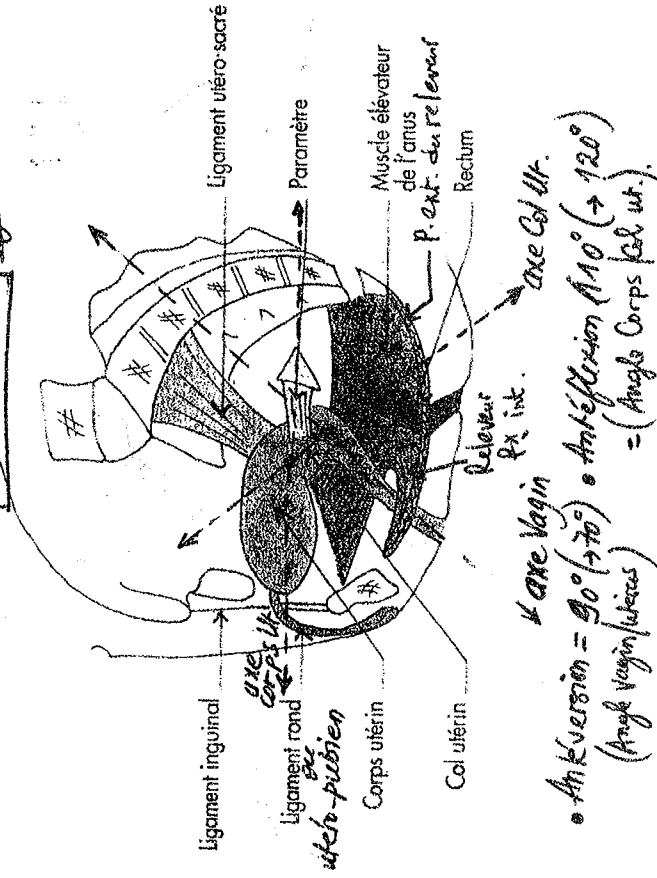 Ligament utéro-sacré
Paramètre
Muscle élévateur
de l'anus
P. ext. du releveur
Rectum
axe Col Ut.
Releveur
fx int.
Ligament inguinal
axe
corps Ut.
Ligament rond
ou
utéro-pubien
Corps utérin
Col utérin
axe Vagin
• Antéversion = 90° (→70°)
(Angle Vagin/utérus)
• Antéflexion (110° (→ 120°)
= (Angle Corps/Col ut.).